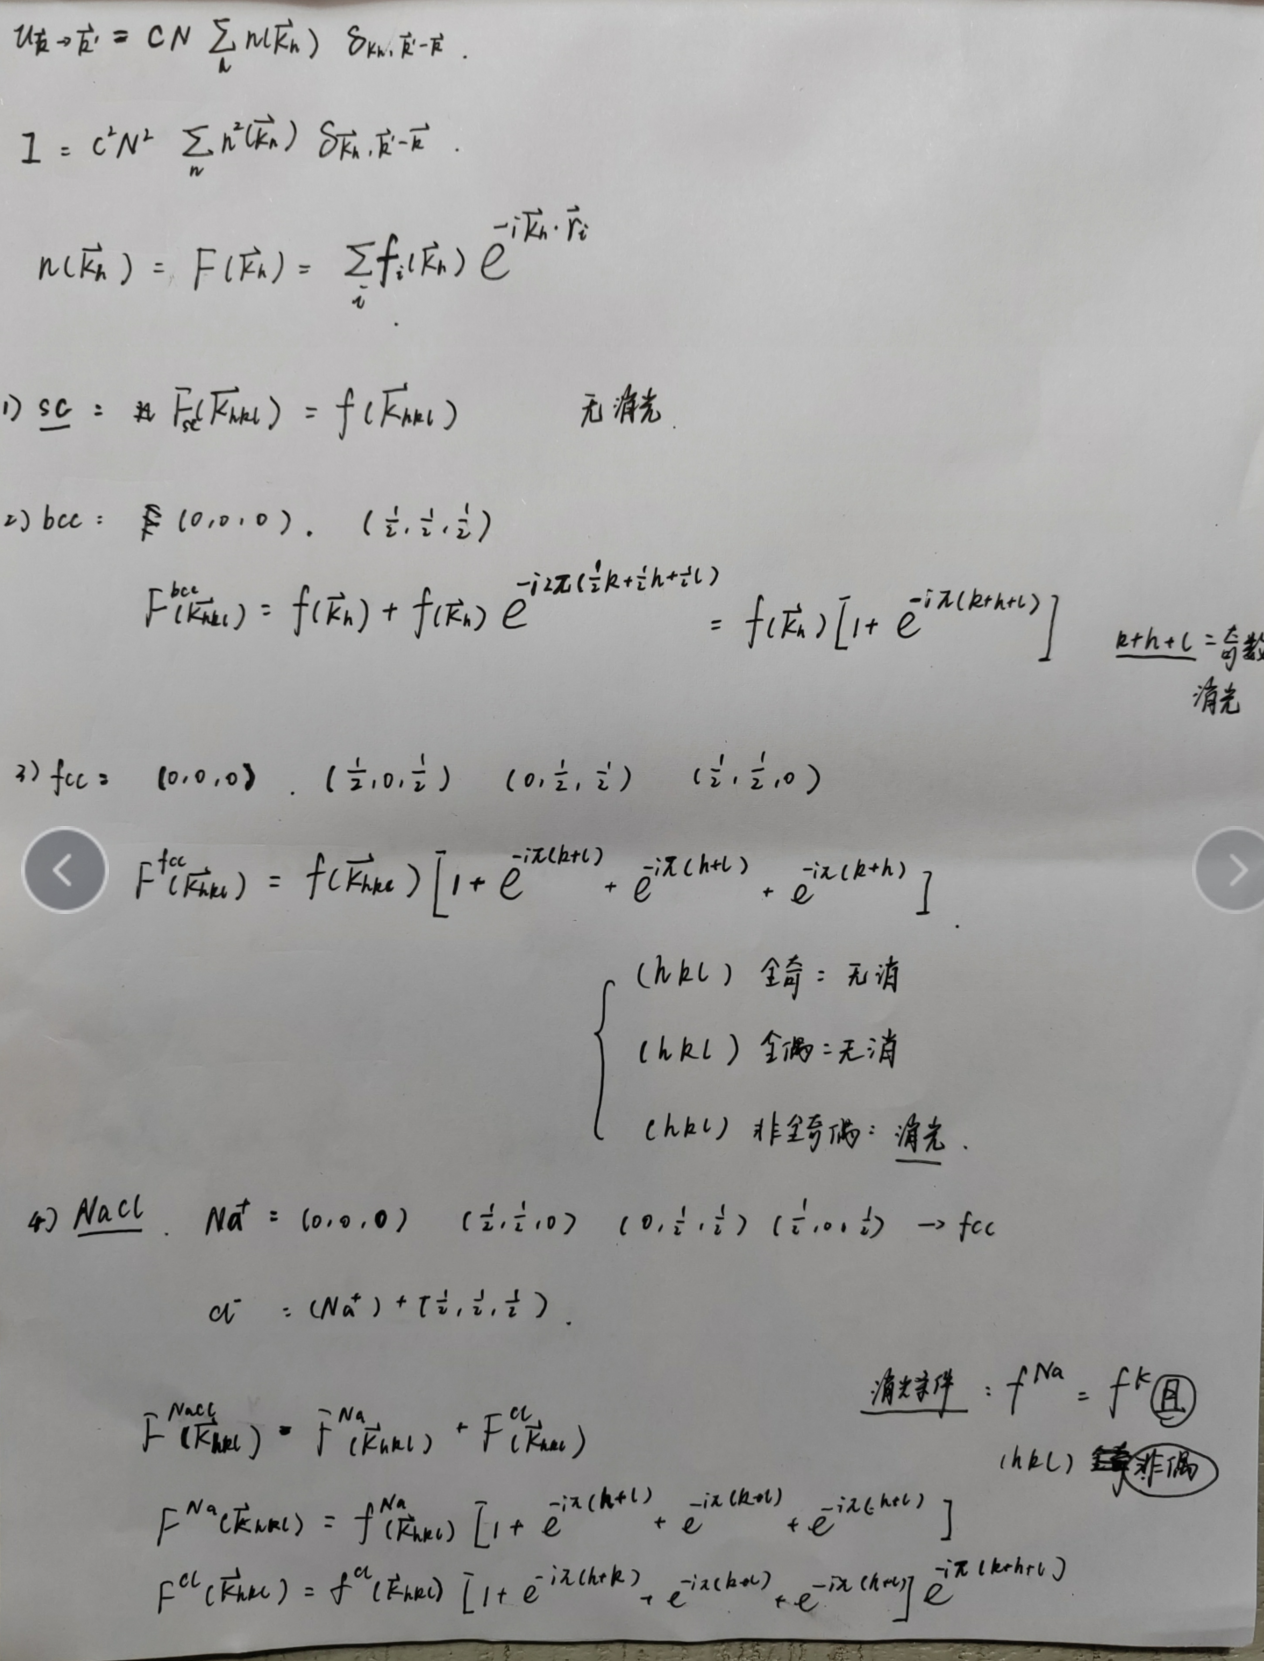 u_{\vec{k}→\vec{k}'} = CN \sum_h n(\vec{K}_h) δ_{K_h, \vec{k}'-\vec{k}} .
I = C²N² \sum_n n²(\vec{K}_n) δ_{\vec{K}_h, \vec{k}'-\vec{k}} .
n(\vec{K}_h) = F(\vec{K}_h) = \sum_i f_i(\vec{K}_h) e^{-i\vec{K}_h·\vec{r}_i}
1) sc : F_{sc}(\vec{K}_{hkl}) = f(\vec{K}_{hkl}) 无消光.
2) bcc : (0,0,0). (½,½,½)
F^{bcc}(\vec{K}_{hkl}) = f(\vec{K}_h) + f(\vec{K}_h) e^{-i2π(½k+½h+½l)} = f(\vec{K}_h)[1+e^{-iπ(k+h+l)}] k+h+l = 奇数
消光
3) fcc : (0,0,0). (½,0,½) (0,½,½) (½,½,0)
F^{fcc}(\vec{K}_{hkl}) = f(\vec{K}_{hkl})[1+e^{-iπ(k+l)} + e^{-iπ(h+l)} + e^{-iπ(k+h)}].
(hkl) 全奇：无消
(hkl) 全偶：无消
(hkl) 非全奇偶：消光.
4) NaCl. Na⁺ = (0,0,0) (½,½,0) (0,½,½) (½,0,½) → fcc
Cl⁻ : (Na⁺) + (½,½,½).
消光条件 : f^{Na} = f^{K} 且
F^{NaCl}(\vec{K}_{hkl}) = F^{Na}(\vec{K}_{hkl}) + F^{Cl}(\vec{K}_{hkl})
(hkl) 非偶
F^{Na}(\vec{K}_{hkl}) = f^{Na}(\vec{K}_{hkl}) [1+e^{-iπ(h+l)} + e^{-iπ(k+l)} + e^{-iπ(h+l)}]
F^{Cl}(\vec{K}_{hkl}) = f^{Cl}(\vec{K}_{hkl}) [1+e^{-iπ(h+k)} + e^{-iπ(k+l)} + e^{-iπ(h+l)}] e^{-iπ(k+h+l)}